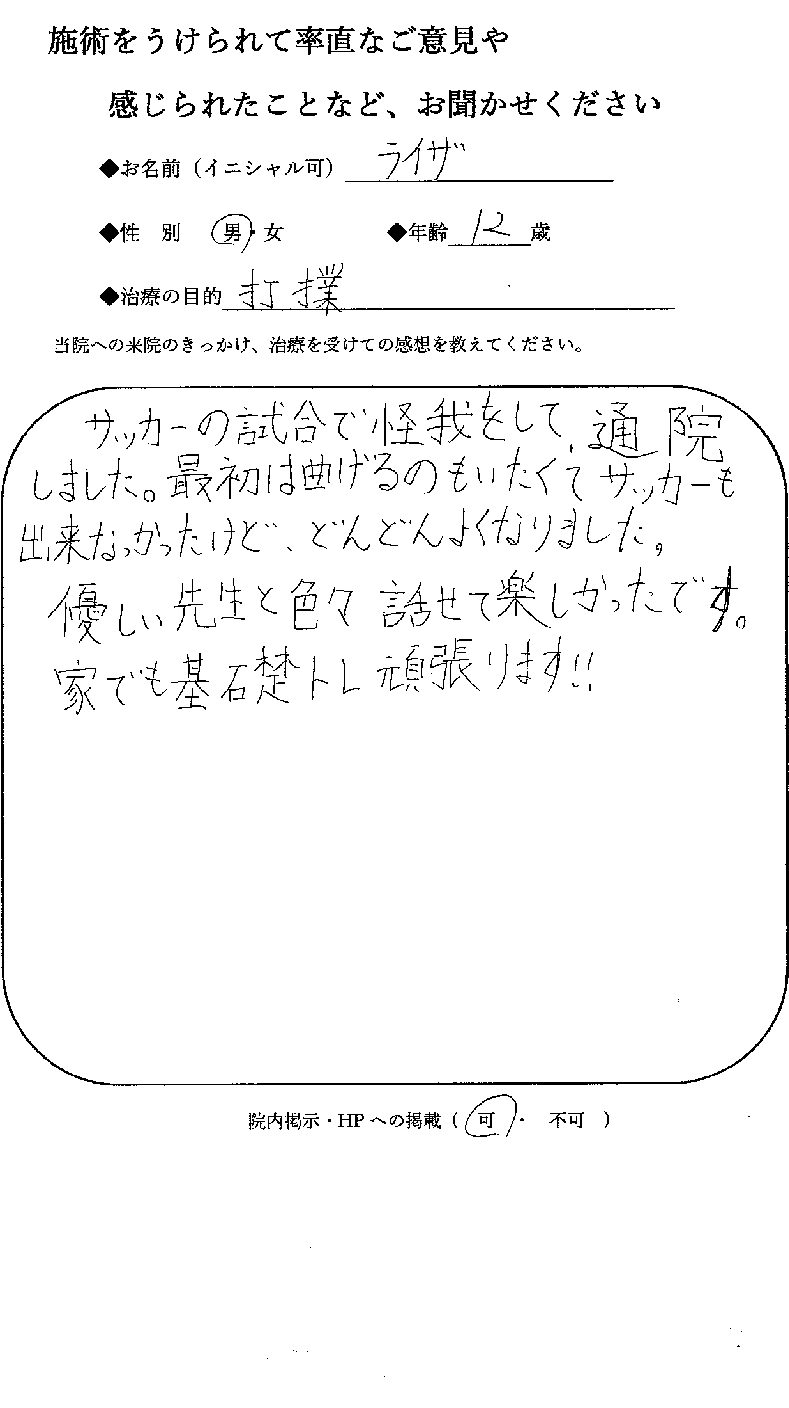 施術をうけられて率直なご意見や
感じられたことなど、お聞かせください
◆お名前（イニシャル可） ライザ
◆性　別　男・女　◆年齢 12 歳
◆治療の目的 打撲
当院への来院のきっかけ、治療を受けての感想を教えてください。
サッカーの試合で怪我をして、通院
しました。最初は曲げるのもいたくてサッカーも
出来なかったけど、どんどんよくなりました。
優しい先生と色々話せて楽しかったです。
家でも基石楚トレ頑張ります!!
院内掲示・HPへの掲載（　可　・　不可　）